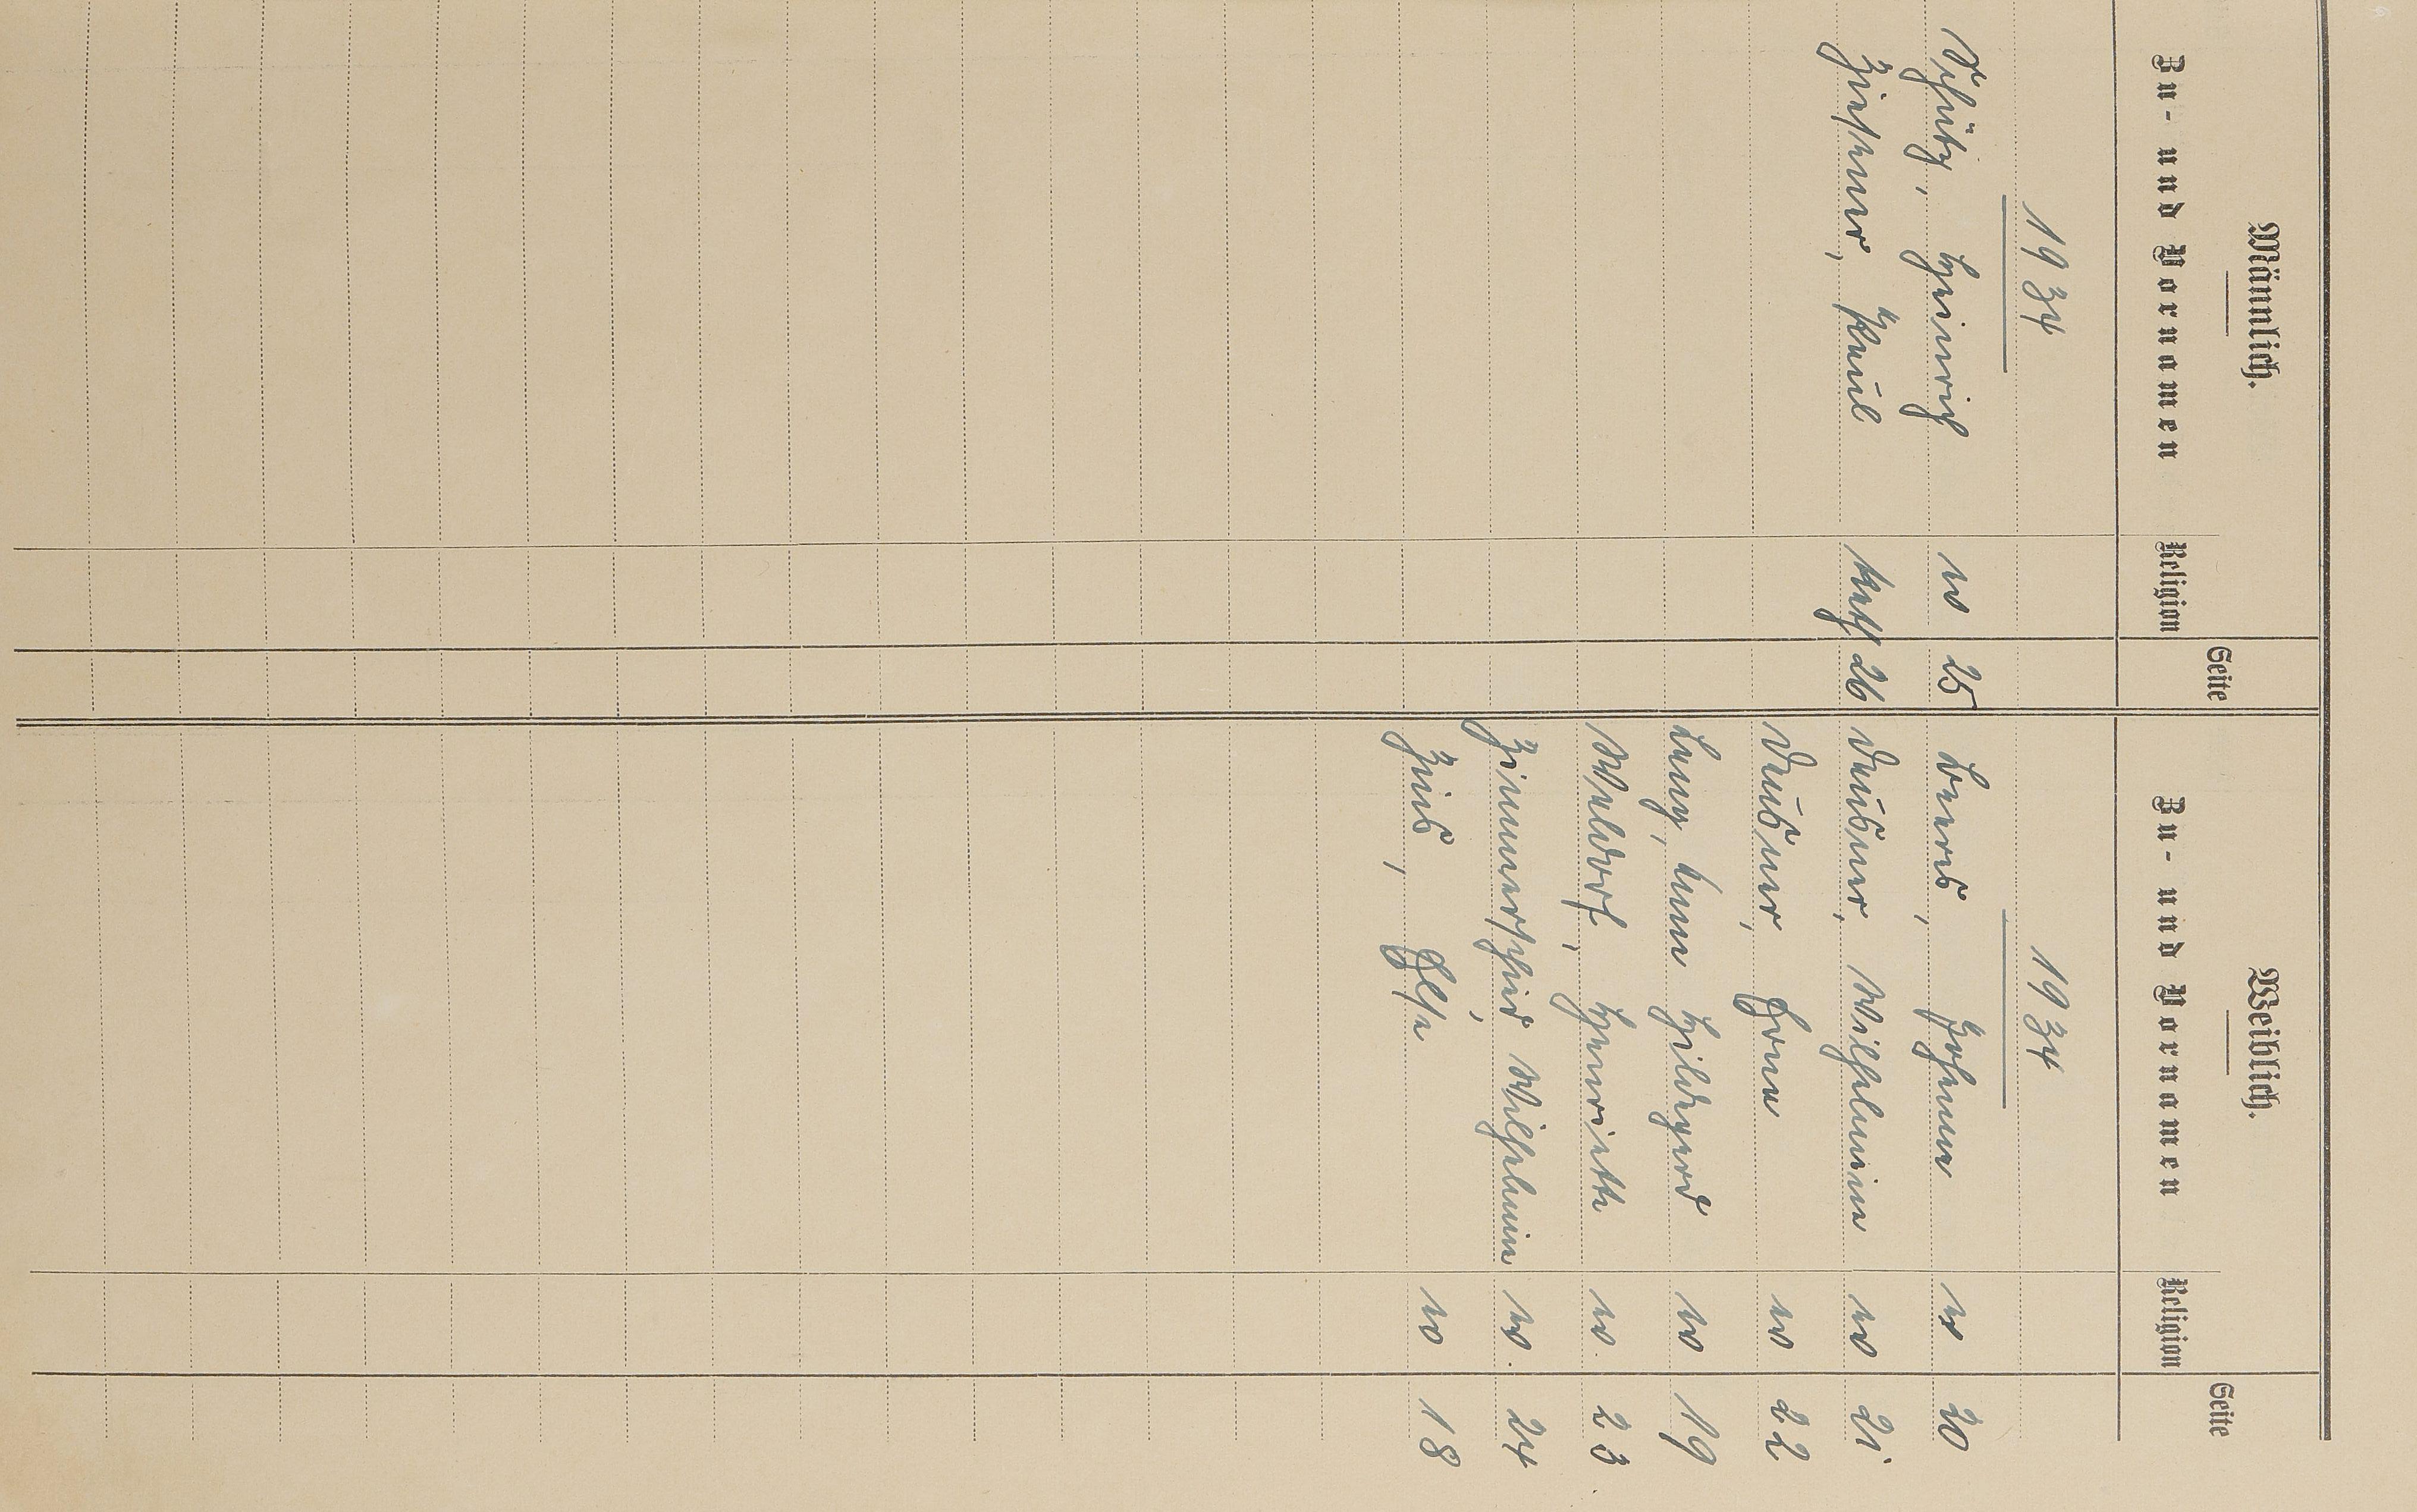 Männlich.
Zu- und Vornamen Religion Seite
1934
Schütz, Heinrich ev 25
Paul kath 26
Weiblich.
Zu- und Vornamen Religion Seite
1934
Johanna ev 20
Dausner, Wilhelmine ev 21
Dausner, Erna ev 22
Lang, Anna Hildegard ev 19
Waldorf, Henriette ev. 23
Zimmerschied, Wilhelmine ev. 24
Else ev 18